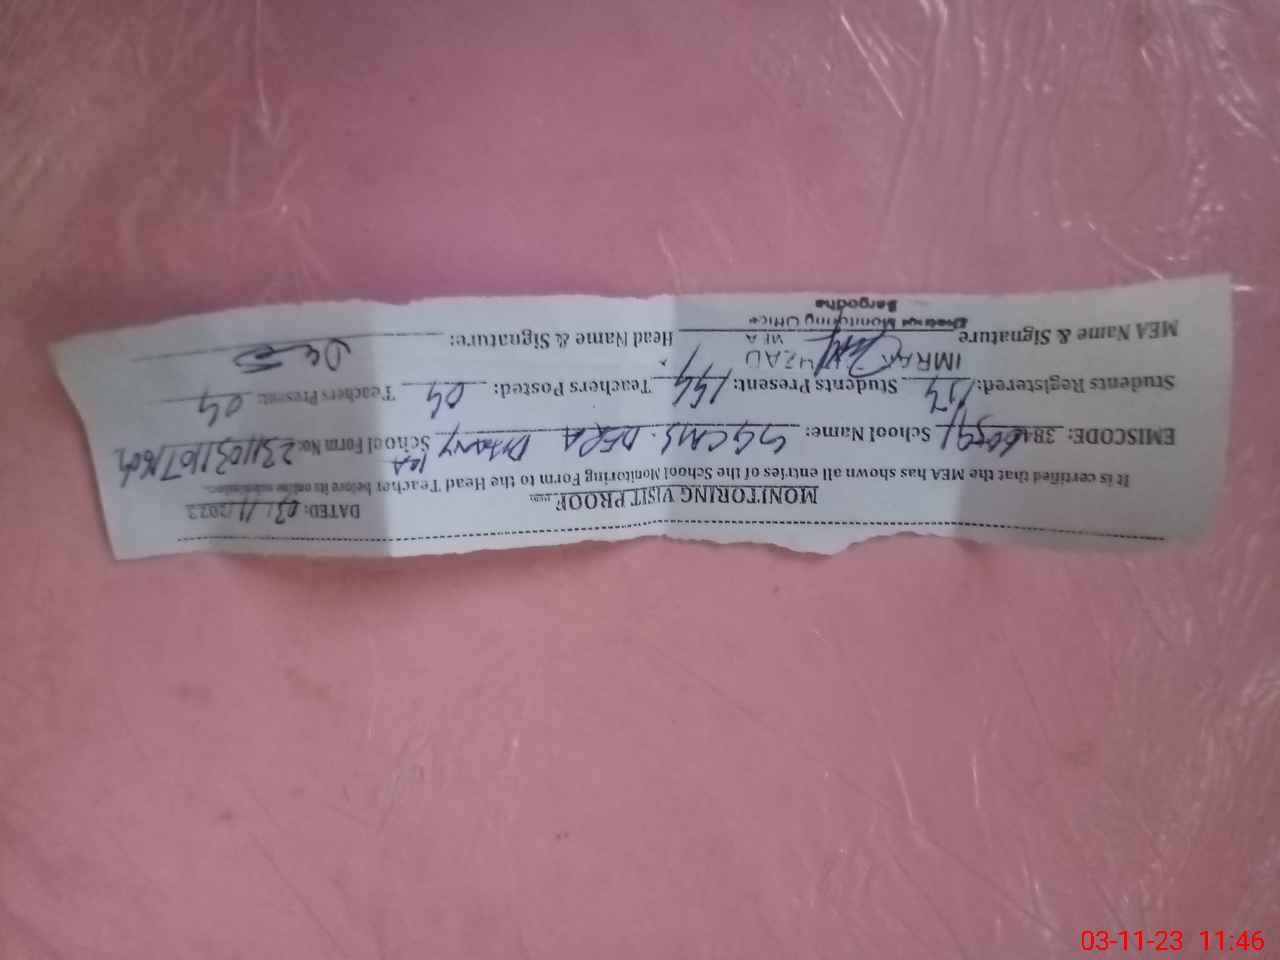 MONITORING VISIT PROOF
DATED: 03/11/2023
It is certified that the MEA has shown all entries of the School Monitoring Form to the Head Teacher before its online submission.
EMISCODE: 384 School Name: DERA School Form No:
Students Registered: Students Present: 154 Teachers Posted: 04 Teachers Present: 04
MEA Name & Signature Head Name & Signature:
IMRAN
MEA
District Monitoring Office
Sargodha
03-11-23 11:46